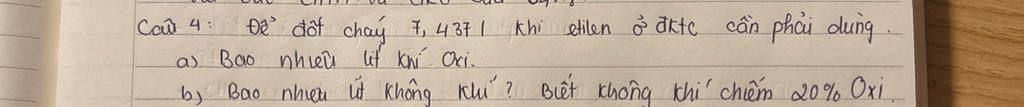 Câu 4: Để đốt cháy 7,437 l khí etilen ở đktc cần phải dùng.
a) Bao nhiêu lít khí Oxi.
b) Bao nhiêu lít không khí? Biết không khí chiếm 20% Oxi